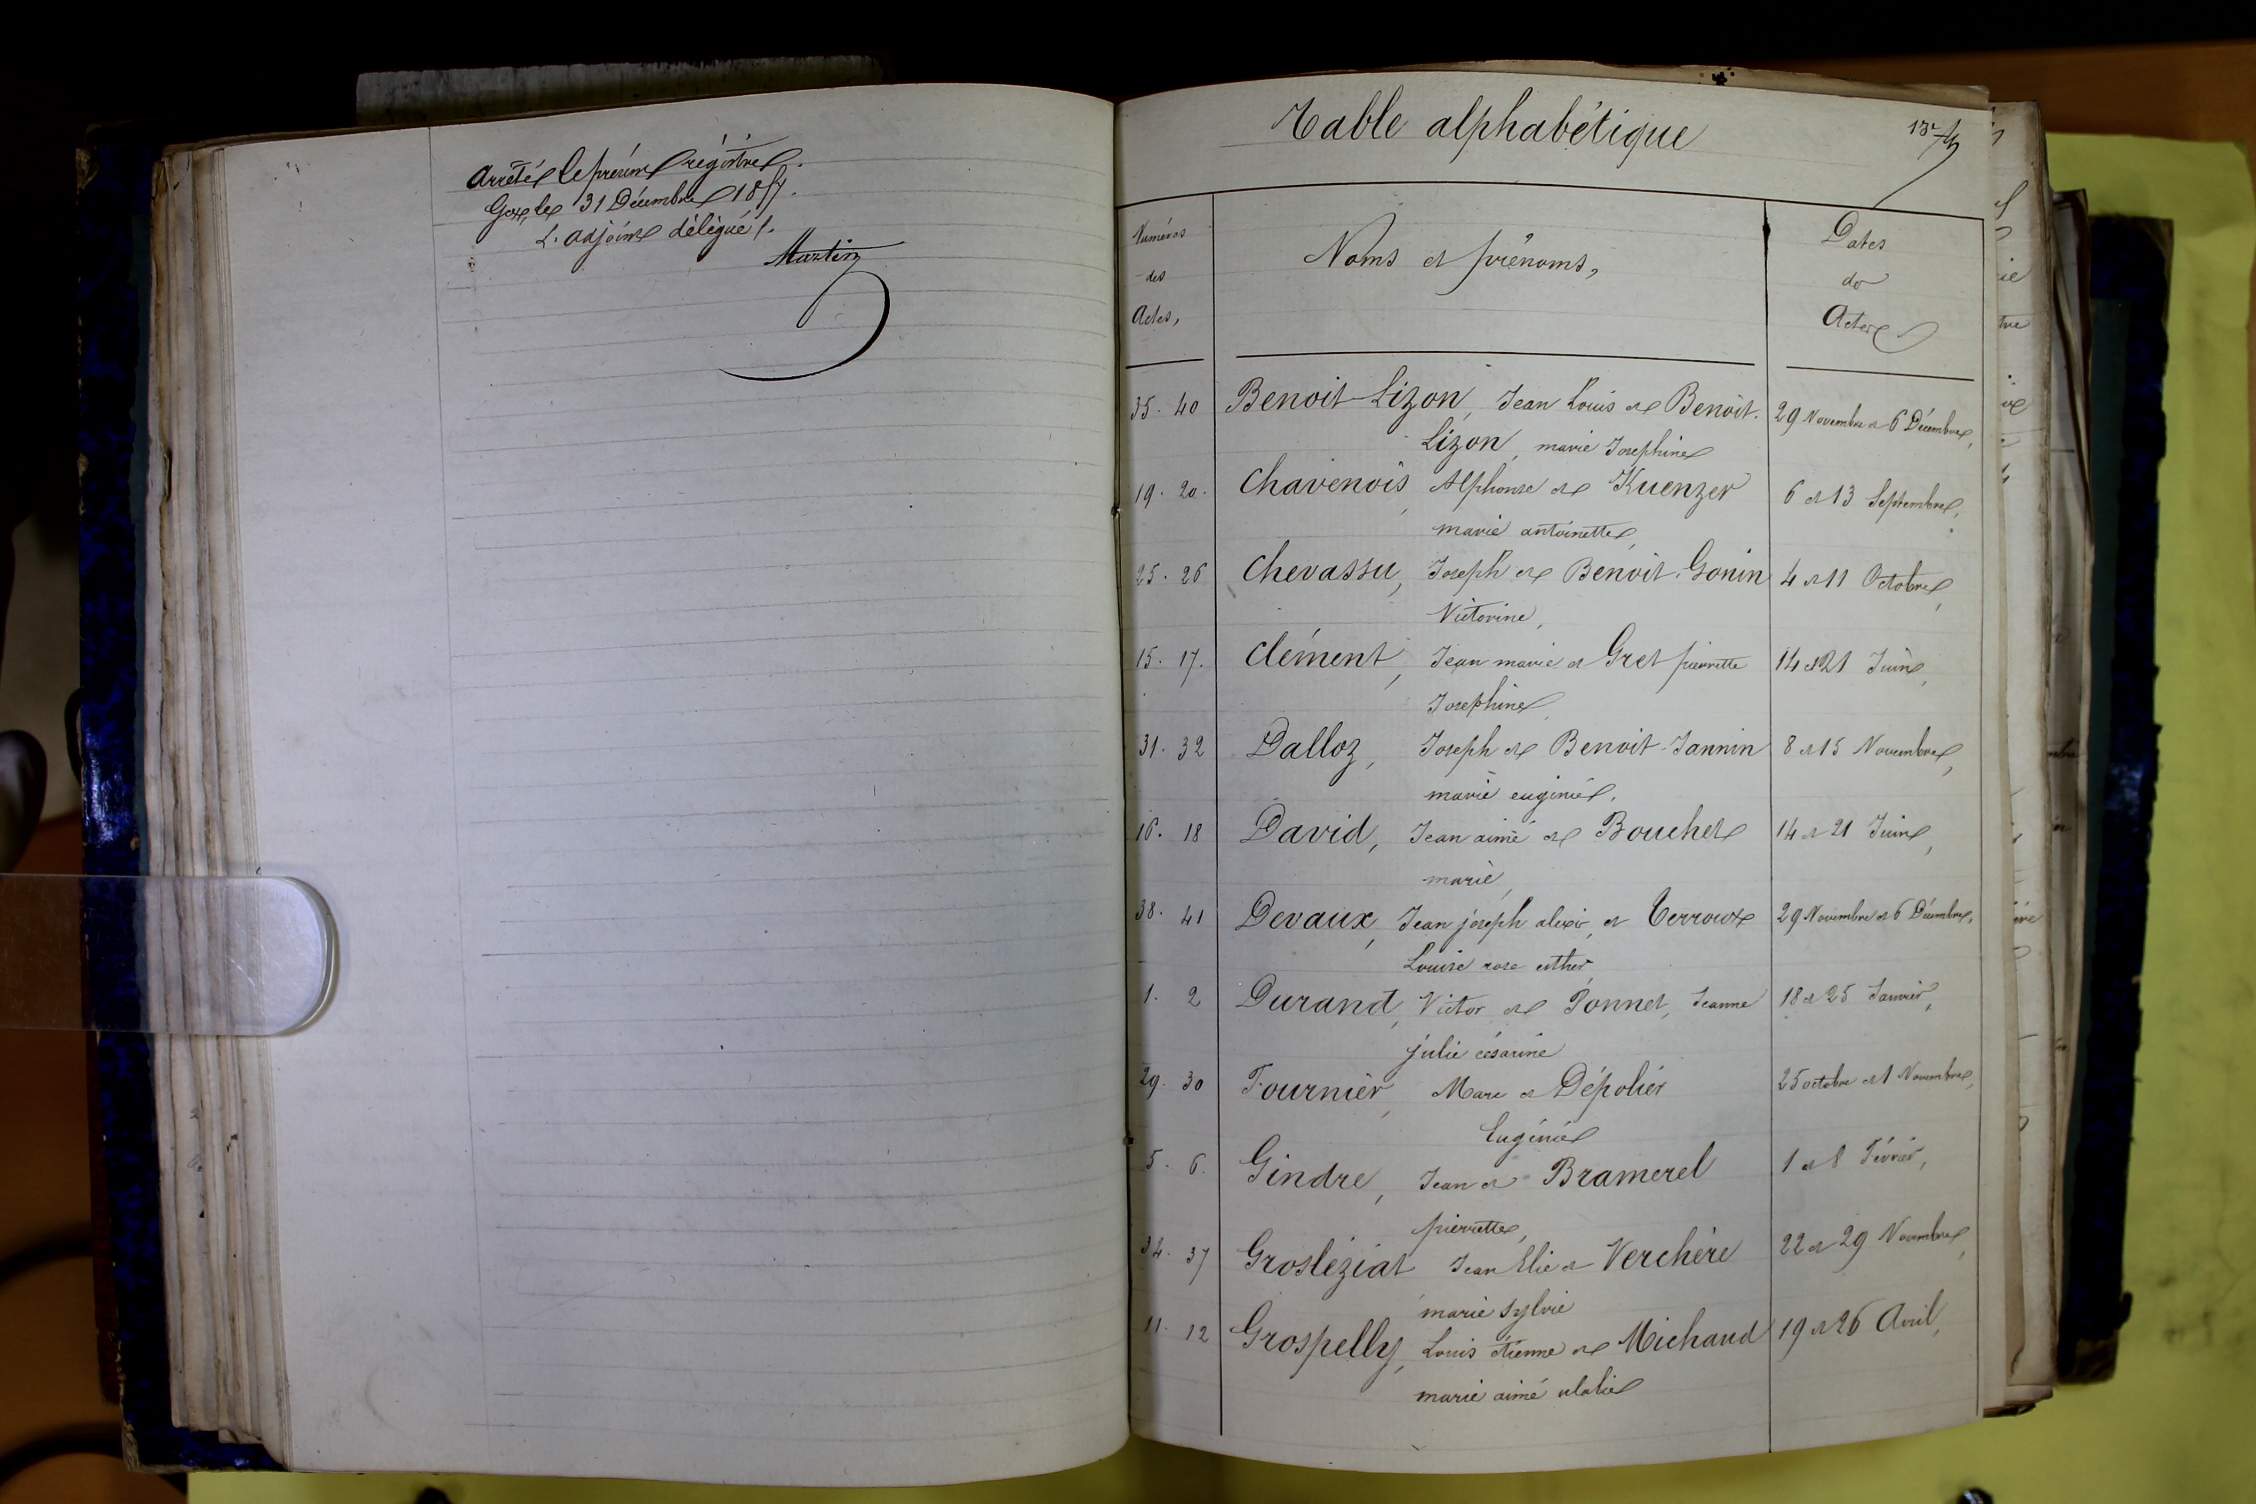 Arrêté le présent régistre.
Gex, le 31 Décembre 18
L'adjoint délégué.
Martin
Table alphabétique
13e
Numéros
des
Actes,
Noms et prénoms,
Dates
de
Actes
35. 40 Benoit-Lizon, Jean Louis et Benoit. 29 Novembre et 6 Décembre,
Lizon, marie Josephine
19. 20. Chavenois, Alphonse et Kuenzer 6 et 13 Septembre,
marie antoinette,
25. 26 Chevassu, Joseph et Benoit-Gonin 4 et 11 Octobre,
Victorine,
15. 17. Clément, Jean marie et Gret pierrette 14 et 21 Juin,
Josephine,
31. 32 Dalloz, Joseph et Benoit-Jannin 8 et 15 Novembre,
marie eugénie,
16. 18 David, Jean aimé et Bouchet 14 et 21 Juin,
marie,
38. 41 Devaux, Jean joseph alexis, et Terroux 29 Novembre et 6 Décembre,
Louise rose esther
1. 2 Durand, Victor et Ponnet, Jeanne 18 et 25 Janvier,
julie césarine
29. 30 Fournier, Marc et Dépolier 25 octobre et 1 Novembre,
Eugénie
5. 6. Gindre, Jean et Bramerel 1 et 8 Février,
pierrette,
34. 37 Grosléziat Jean Elie et Verchère 22 et 29 Novembre,
marie sylvie
11. 12 Grospelly, Louis étienne et Michaud 19 et 26 Avril,
marie aimé ulalie